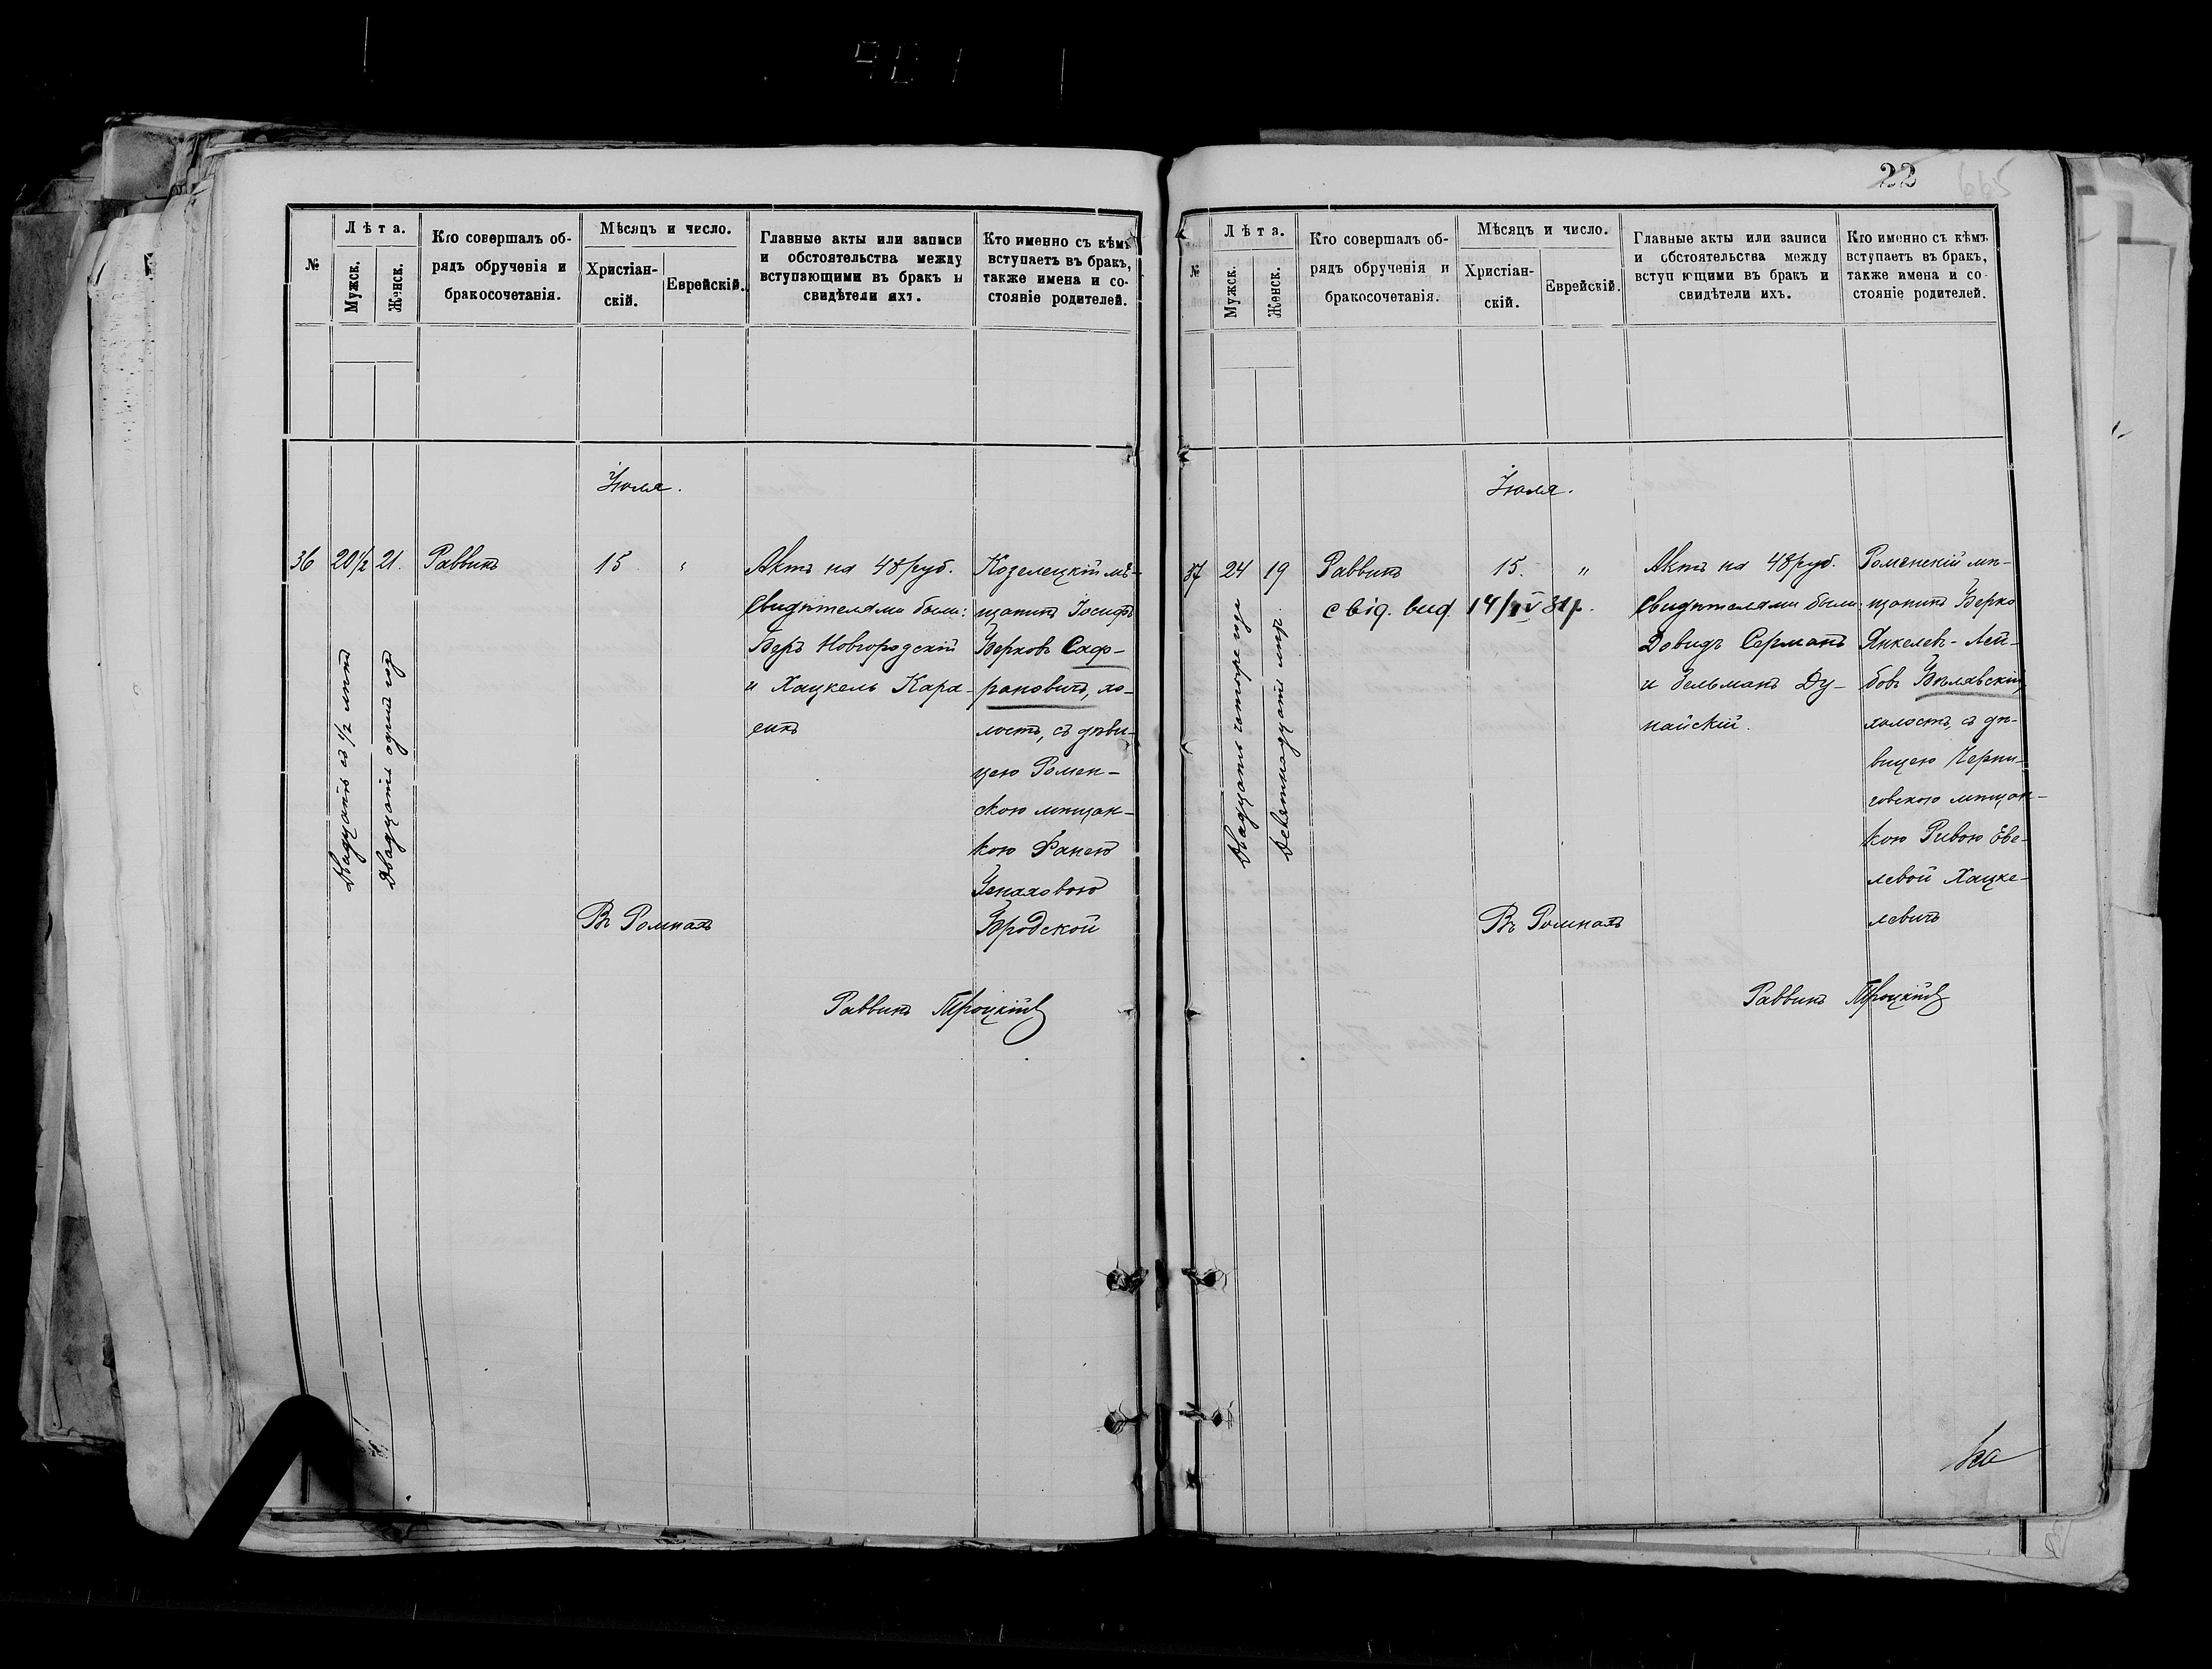 22
№
Лѣта.
Мужск.
Женск.
Кто совершалъ об-
рядъ обрученія и
бракосочетанія.
Мѣсяцъ и число.
Христіан-
скій.
Еврейскій.
Главные акты или записи
и обстоятельства между
вступающими въ бракъ и
свидѣтели ихъ.
Кто именно съ кѣмъ
вступаетъ въ бракъ,
также имена и со-
стояніе родителей.
Іюля.
36
20 1/2
21.
Двадцать съ 1/2 лѣтъ
Двадцать одинъ годъ
Раввинъ
15
"
Въ Ромнахъ
Актъ на 48 руб.
Свидѣтелями были:
Беръ Новгородскій
и Хацкель Кара-
сикъ
Козелецкій мѣ-
щанинъ Іосифъ
Берковъ Саф-
рановичъ, хо-
лостъ, съ дѣви-
цею Ромен-
скою мѣщан-
кою Фанею
Бродской
Раввинъ Троцкій
№
Лѣта.
Мужск.
Женск.
Кто совершалъ об-
рядъ обрученія и
бракосочетанія.
Мѣсяцъ и число.
Христіан-
скій.
Еврейскій.
Главные акты или записи
и обстоятельства между
вступ ющими въ бракъ и
свидѣтели ихъ.
Кто именно съ кѣмъ
вступаетъ въ бракъ,
также имена и со-
стояніе родителей.
Іюля.
37
24
19
Двадцать четыре года
Девятнадцать лѣтъ
Раввинъ
15.
"
свід. вид. 14/IV 31 р.
Въ Ромнахъ
Актъ на 48 руб.
Свидѣтелями были:
Довидъ Серманъ
и Зельманъ Ду-
найскій.
Роменскій мѣ-
щанинъ Берко
Янкелев-Лей-
бовъ Бѣлявскій,
холостъ, съ дѣ-
вицею Черни-
говскою мѣщан-
кою Ривою Еве-
левой Хацке-
левичъ
Раввинъ Троцкій